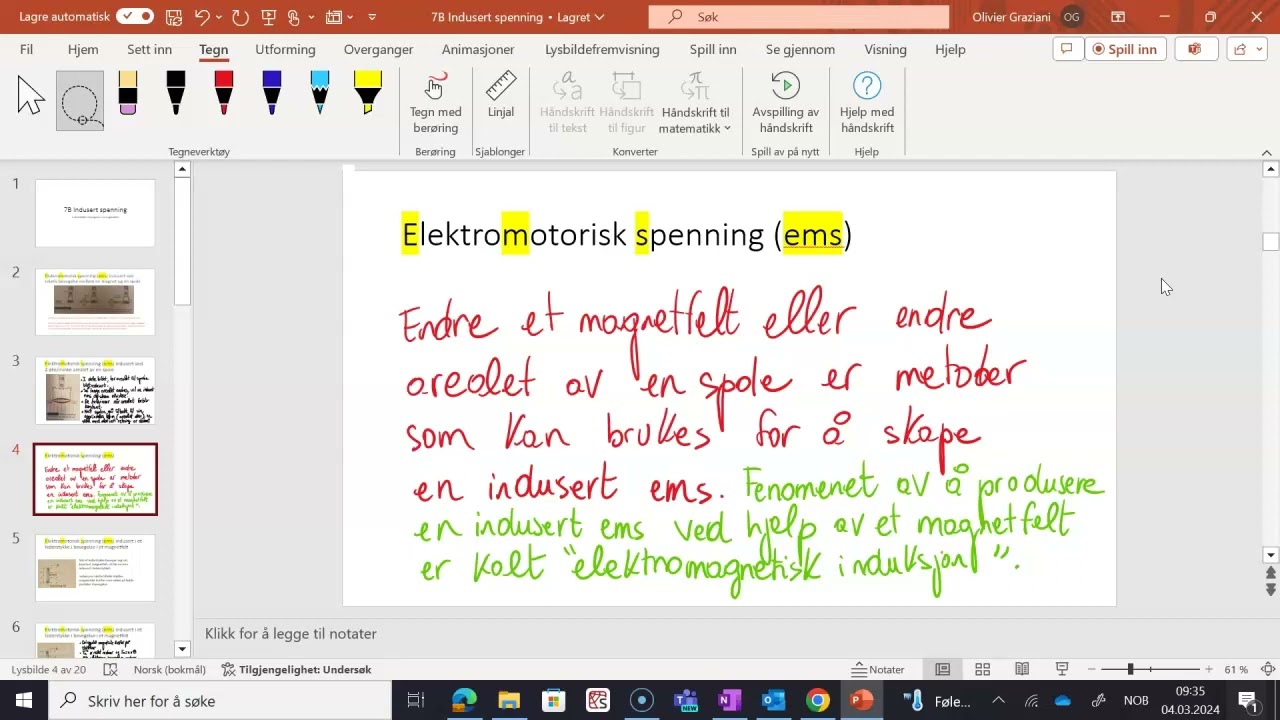 Lagre automatisk
7B Indusert spenning • Lagret
Søk
Olivier Graziani
OG
Fil Hjem Sett inn Tegn Utforming Overganger Animasjoner Lysbildefremvisning Spill inn Se gjennom Visning Hjelp
Spill inn
Tegn med berøring
Linjal
Håndskrift til tekst
Håndskrift til figur
Håndskrift til matematikk
Avspilling av håndskrift
Hjelp med håndskrift
Tegneverktøy Berøring Sjablonger Konverter Spill av på nytt Hjelp
1
7B Indusert spenning
2
3
4
5
6
Elektromotorisk spenning (ems)
Endre et magnetfelt eller endre
arealet av en spole er metoder
som kan brukes for å skape
en indusert ems. Fenomenet av å produsere
en indusert ems ved hjelp av et magnetfelt
er kalt “elektromagnetisk induksjon”.
Klikk for å legge til notater
Lysbilde 4 av 20 Norsk (bokmål) Tilgjengelighet: Undersøk Notater 61 %
Skriv her for å søke
NEW
Føle...
NOB
09:35
04.03.2024
1